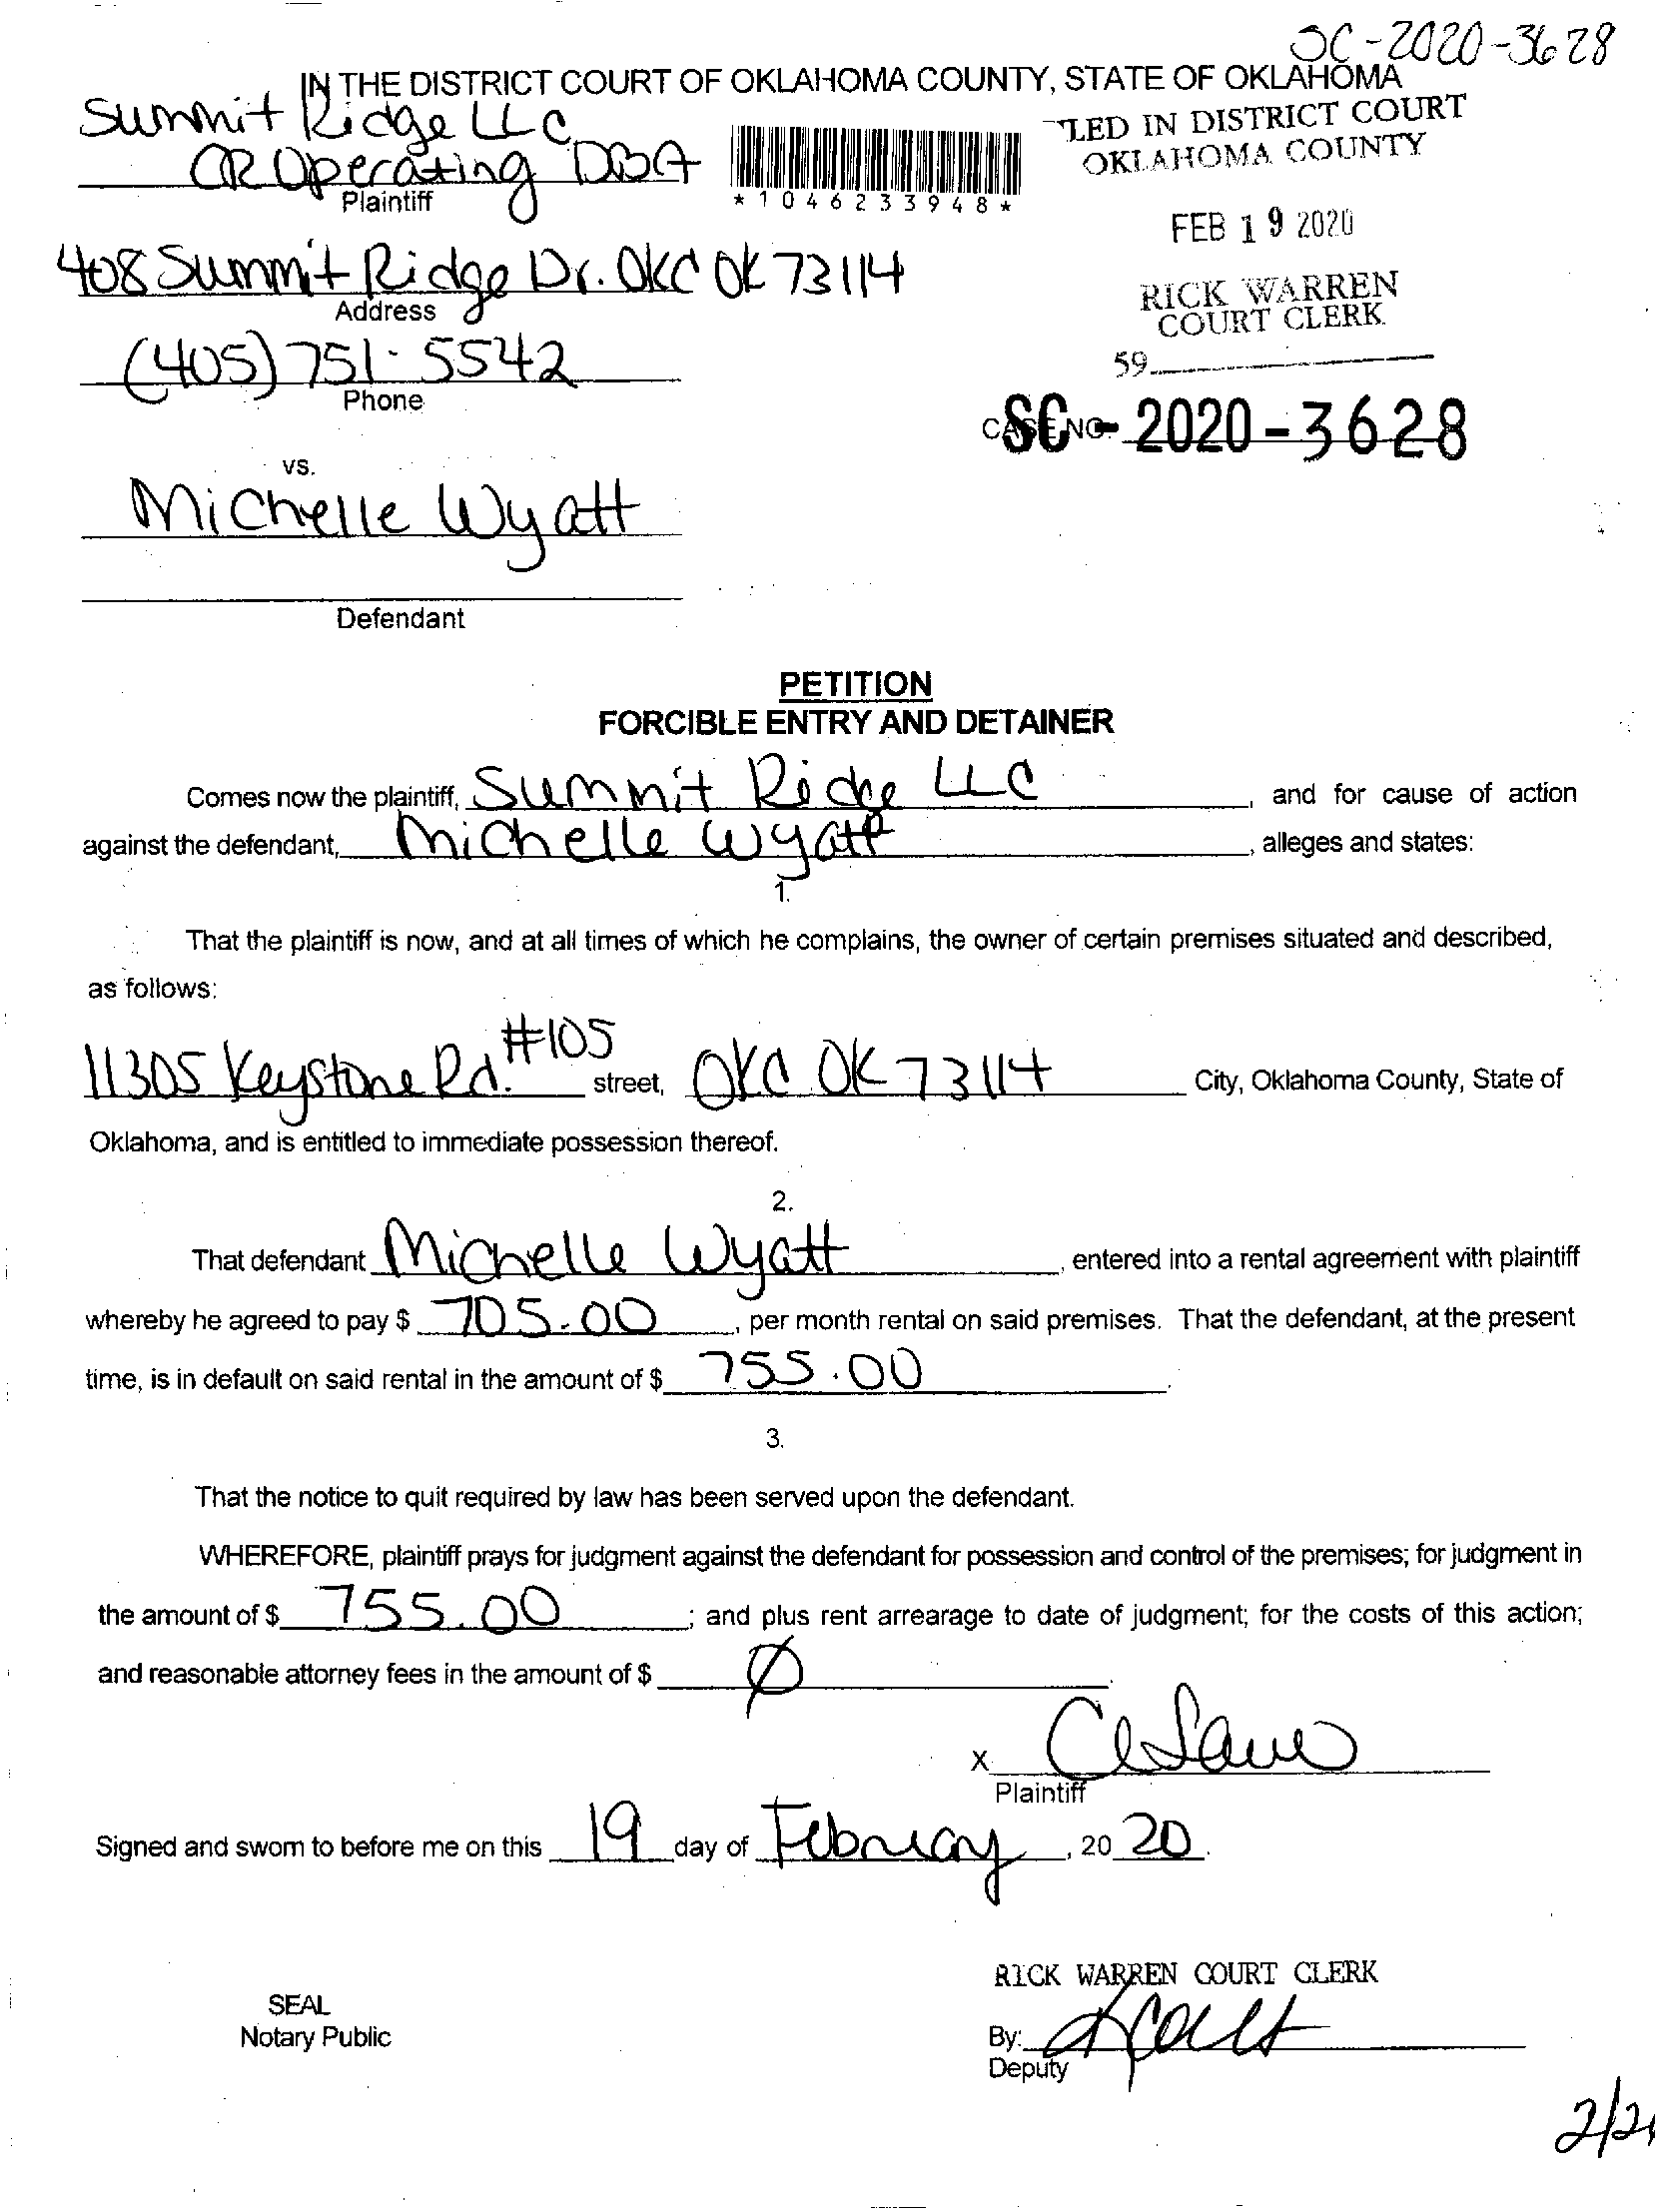 SC-2020-3628
IN THE DISTRICT COURT OF OKLAHOMA COUNTY, STATE OF OKLAHOMA
Summit Ridge LLC
CR Operating DBA
Plaintiff
*1046233948*
LED IN DISTRICT COURT
OKLAHOMA COUNTY
FEB 19 2020
RICK WARREN
COURT CLERK
59
408 Summit Ridge Dr. OKC OK 73114
Address
(405) 751-5542
Phone
CASE NO.
SC-2020-3628
vs.
Michelle Wyatt
Defendant
PETITION
FORCIBLE ENTRY AND DETAINER
Comes now the plaintiff, Summit Ridge LLC, and for cause of action
against the defendant, Michelle Wyatt, alleges and states:
1.
That the plaintiff is now, and at all times of which he complains, the owner of certain premises situated and described,
as follows:
11305 Keystone Rd. #105 street, OKC OK 73114 City, Oklahoma County, State of
Oklahoma, and is entitled to immediate possession thereof.
2.
That defendant Michelle Wyatt, entered into a rental agreement with plaintiff
whereby he agreed to pay $ 705.00, per month rental on said premises. That the defendant, at the present
time, is in default on said rental in the amount of $ 755.00.
3.
That the notice to quit required by law has been served upon the defendant.
WHEREFORE, plaintiff prays for judgment against the defendant for possession and control of the premises; for judgment in
the amount of $ 755.00; and plus rent arrearage to date of judgment; for the costs of this action;
and reasonable attorney fees in the amount of $ Ø.
X
Plaintiff
Signed and sworn to before me on this 19 day of February, 20 20.
RICK WARREN COURT CLERK
SEAL
Notary Public
By:
Deputy